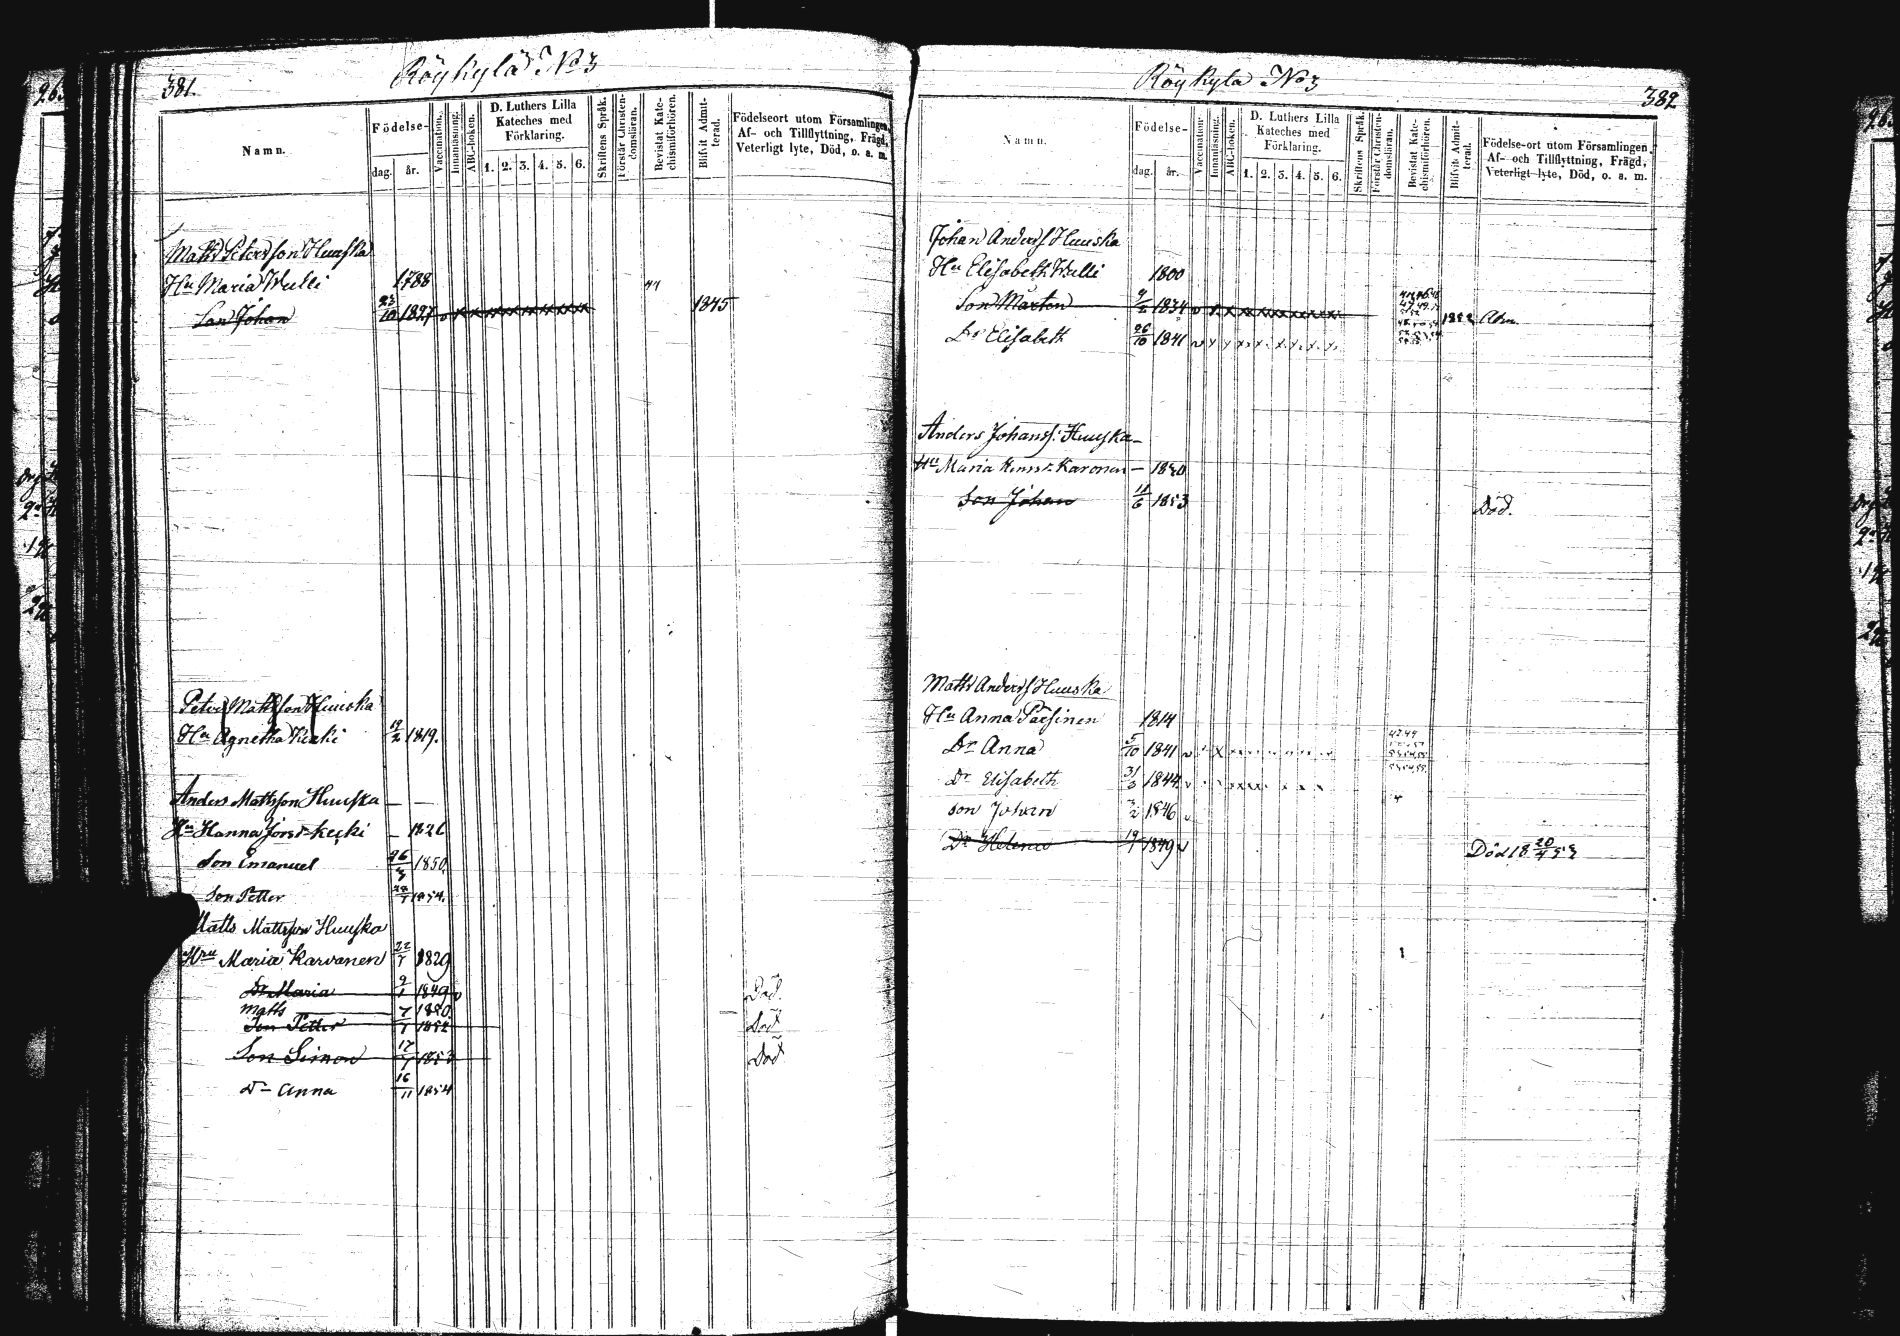 381.
Röykylä No 3
Namn.
Födelse-
dag.
år.
Vaccination.
Innanläsning.
ABC-boken.
D. Luthers Lilla
Kateches med
Förklaring.
1. 2. 3. 4. 5. 6.
Skriftens Språk.
Förstår Christen-
domsläran.
Bevistat Kate-
chismiförhören.
Blifvit Admit-
terad.
Födelseort utom Församlingen,
Af- och Tillflyttning, Frägd,
Veterligt lyte, Död, o. a. m.
Matts Petersson Huuska
Hu Maria Wulli 1788
Son Johan 23/10 1827 1845
Petter Mattsson Huuska
Hu Agnetha Keski 19/2 1819.
Anders Mattsson Huuska — —
Hu Hanna Keski — 1826
Son Emanuel 1850
Son Petter 1854.
Matts Mattsson Huuska
Hru Maria Karvanen 22/7 1829
Dr Maria 9/1 1849 Död.
Matts
Son Petter 1852 Död
Son Simon 17/7 1853 Död
Dr Anna 16/11 1854
Röykylä No 3
382
Namn.
Födelse-
dag.
år.
Vaccination.
Innanläsning.
ABC-boken.
D. Luthers Lilla
Kateches med
Förklaring.
1. 2. 3. 4. 5. 6.
Skriftens Språk.
Förstår Christen-
domsläran.
Bevistat Kate-
chismiförhören.
Blifvit Admit-
terad.
Födelse-ort utom Församlingen,
Af- och Tillflyttning, Frägd,
Veterligt lyte, Död, o. a. m.
Johan Anderss Huuska
Hu Elisabeth Wulli 1800
Son Marten 1834 1852
Dr Elisabeth 26/10 1841
Anders Johanss: Huuska —
Hu Maria Karonen —
Son Johan 11/6 1853 Död.
Matts Anderss Huuska
Hu Anna Parsinen 1814
Dr Anna 5/10 1841
Dr Elisabeth 1844
Son Johan 3/2 1846
Dr Helena 19/1 1849 Död 18 20/4 53